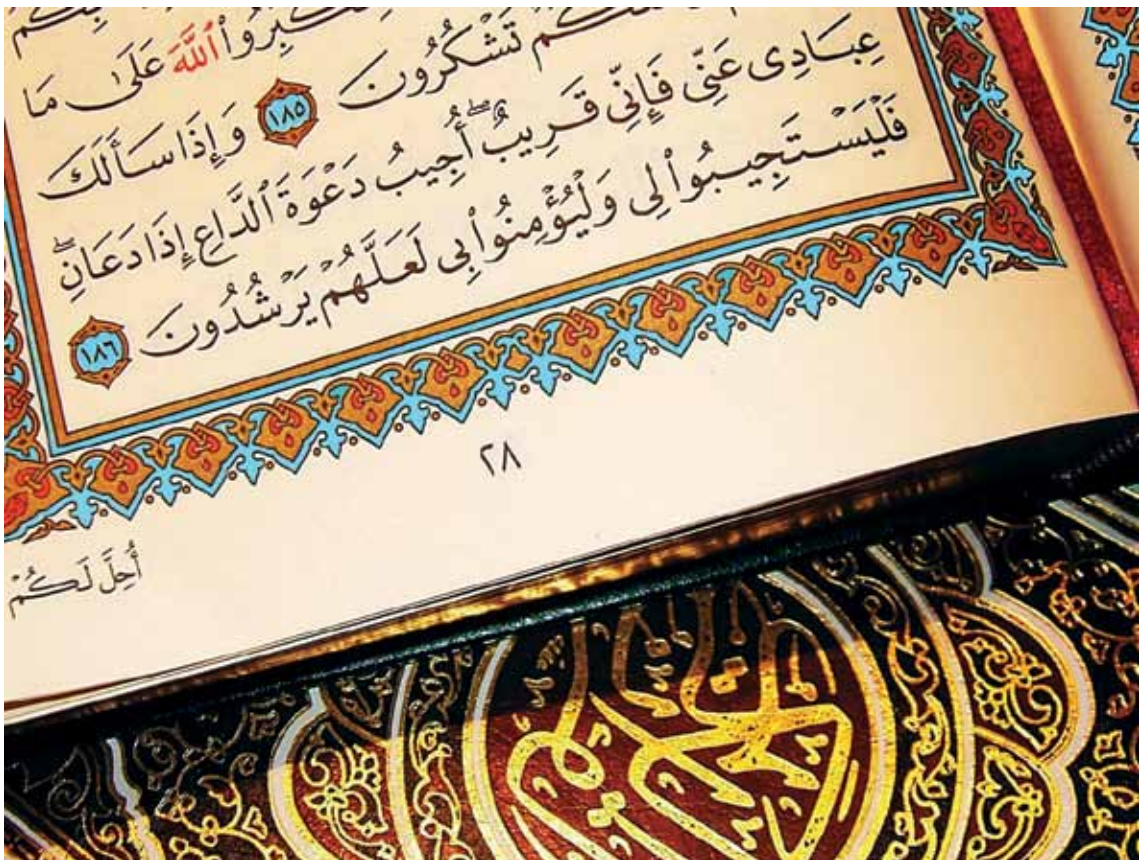 ٱللَّهَ عَلَىٰ مَا
تَشْكُرُونَ ١٨٥ وَإِذَا سَأَلَكَ
عِبَادِى عَنِّى فَإِنِّى قَرِيبٌۖ أُجِيبُ دَعْوَةَ ٱلدَّاعِ إِذَا دَعَانِۖ
فَلْيَسْتَجِيبُوا۟ لِى وَلْيُؤْمِنُوا۟ بِى لَعَلَّهُمْ يَرْشُدُونَ ١٨٦
٢٨
أُحِلَّ لَكُمْ